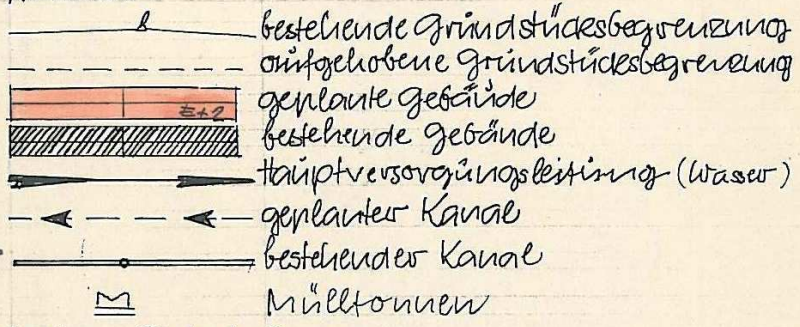 bestehende Grundstücksbegrenzung
aufgehobene Grundstücksbegrenzung
E+2 geplante Gebäude
bestehende Gebäude
Hauptversorgungsleitung (Wasser)
geplanter Kanal
bestehender Kanal
M Mülltonnen